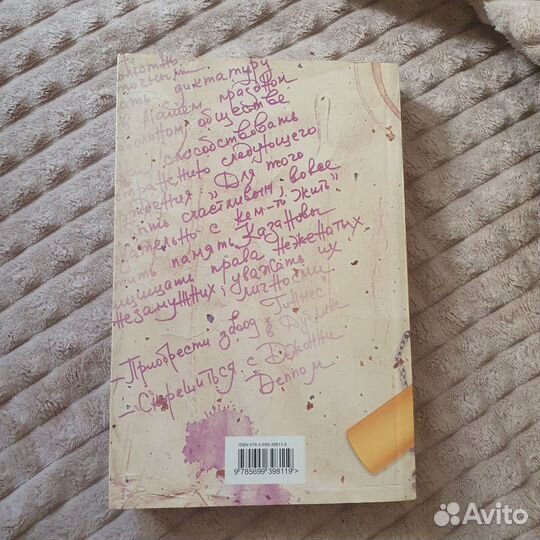 диктатуру
нашем праздном
обществе
способствовать
следующего
"Для того
быть счастливым, вовсе
с кем-то жить"
память Казановы
права неженатых
незамужних, уважать их
личности.
— Приобрести завод "Гиннес"
в Дублине
— Скрещиться с Джонни
Деппом
ISBN 978-5-699-39811-9
9 785699 398119 >
Avito